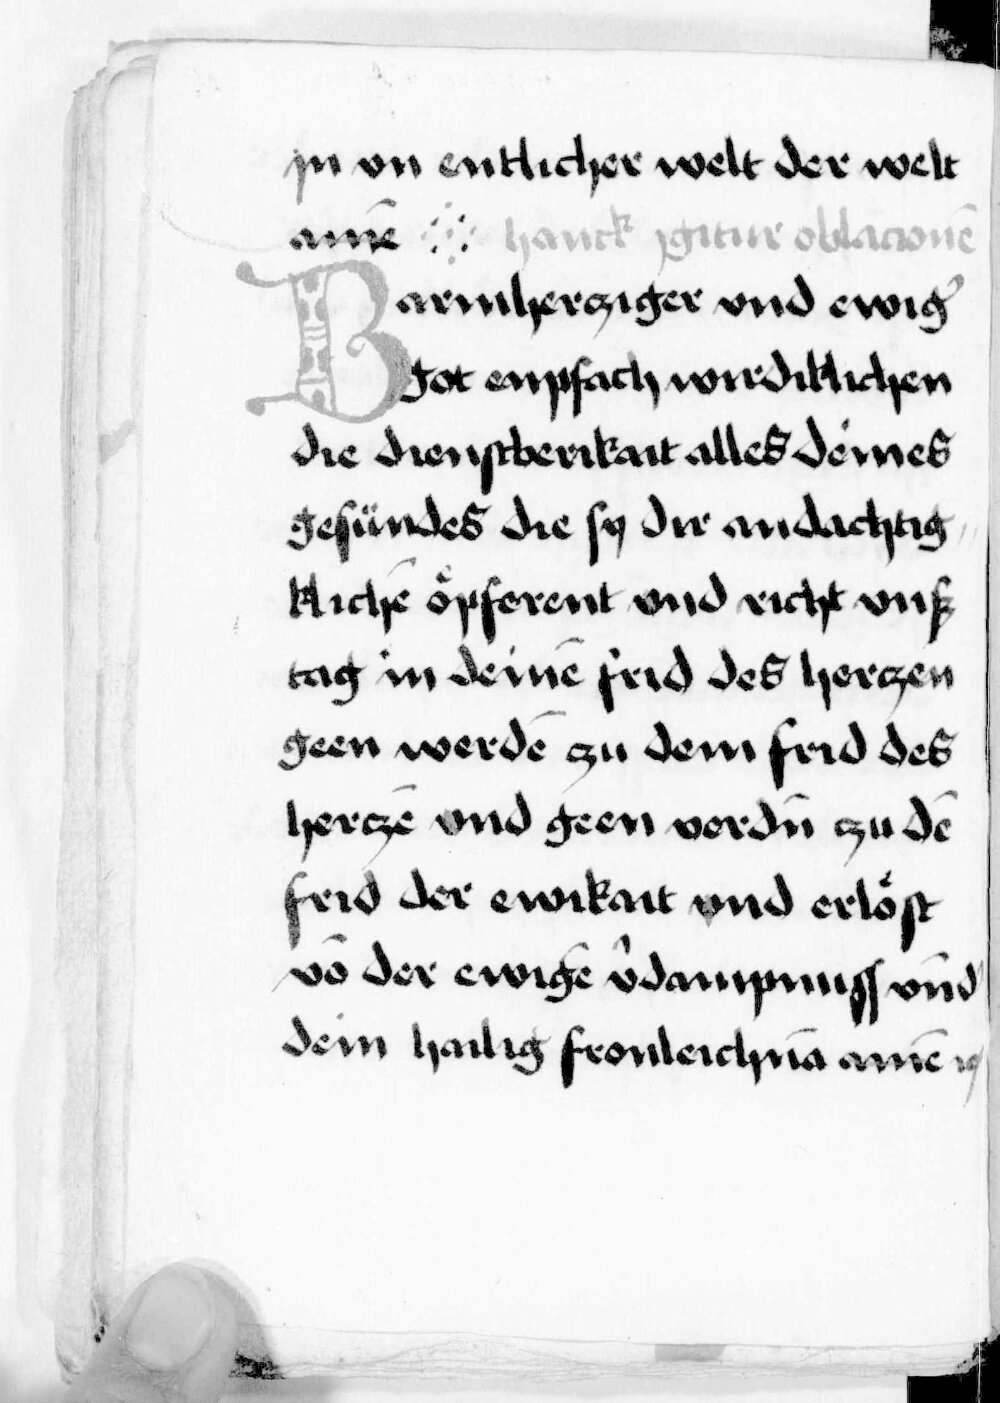 in vn entlicher welt der welt
amē hanck ygitur oblacionē
Barmherziger vnd ewig᾽
got enpfach wirdiklichen
die dienstberikait alles deines
gesündes die sy dir andachtig
klichē öpferent vnd richt vnß
tag in deinē frid des herczen
geen werdē zu dem frid des
herczē vnd geen verdn̄ zu dē
frid der ewikait vnd erlöst
vō der ewigē v̂dampnuss vn̄d
dein hailig fronleichnā amē